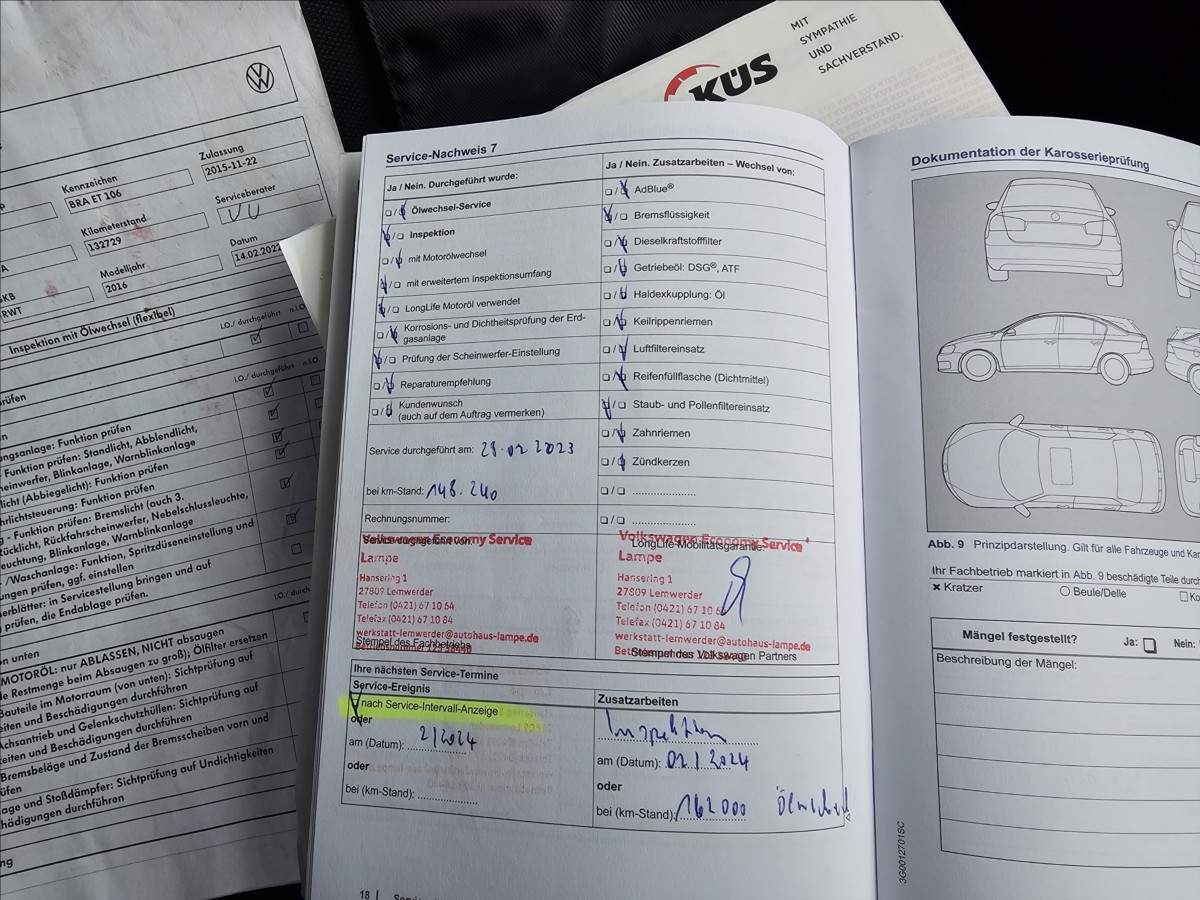 Zulassung
Kennzeichen
2015-11-22
BRA ET 106
Kilometerstand
Serviceberater
132729
VU
Modelljahr
Datum
2016
14.02.2022
RWT
Inspektion mit Ölwechsel (flexibel)
i.O./ durchgeführt n.i.O.
i.O./ durchgeführt n.i.O.
Funktion prüfen
Funktion prüfen: Standlicht, Abblendlicht,
Blinkanlage, Warnblinkanlage
(Abbiegelicht): Funktion prüfen
Funktion prüfen
- Funktion prüfen: Bremslicht (auch 3.
Rückfahrscheinwerfer, Nebelschlussleuchte,
Blinkanlage, Warnblinkanlage
Funktion, Spritzdüseneinstellung und
prüfen, ggf. einstellen
in Servicestellung bringen und auf
prüfen, die Endablage prüfen.
i.O./ durchgeführt
von unten
MOTORÖL: nur ABLASSEN, NICHT absaugen
Restmenge beim Absaugen zu groß); Ölfilter ersetzen
Bauteile im Motorraum (von unten): Sichtprüfung auf
und Beschädigungen durchführen
und Gelenkschutzhüllen: Sichtprüfung auf
und Beschädigungen durchführen
Bremsbeläge und Zustand der Bremsscheiben vorn und
und Stoßdämpfer: Sichtprüfung auf Undichtigkeiten
durchführen
KÜS
MIT
SYMPATHIE
UND
SACHVERSTAND.
Service-Nachweis 7
Ja / Nein. Durchgeführt wurde:
Ölwechsel-Service
Inspektion
mit Motorölwechsel
mit erweitertem Inspektionsumfang
LongLife Motoröl verwendet
Korrosions- und Dichtheitsprüfung der Erd-
gasanlage
Prüfung der Scheinwerfer-Einstellung
Reparaturempfehlung
Kundenwunsch
(auch auf dem Auftrag vermerken)
Service durchgeführt am: 28.02.2023
bei km-Stand: 148.240
Rechnungsnummer:
Service durchgeführt von:
Volkswagen Economy Service
Lampe
Hansering 1
27809 Lemwerder
Telefon (0421) 67 10 64
Telefax (0421) 67 10 84
werkstatt-lemwerder@autohaus-lampe.de
Stempel des Fachbetriebs
Ja / Nein. Zusatzarbeiten – Wechsel von:
AdBlue®
Bremsflüssigkeit
Dieselkraftstofffilter
Getriebeöl: DSG®, ATF
Haldexkupplung: Öl
Keilrippenriemen
Luftfiltereinsatz
Reifenfüllflasche (Dichtmittel)
Staub- und Pollenfiltereinsatz
Zahnriemen
Zündkerzen
LongLife-Mobilitätsgarantie:
Volkswagen Economy Service
Lampe
Hansering 1
27809 Lemwerder
Telefon (0421) 67 10 6
Telefax (0421) 67 10 84
werkstatt-lemwerder@autohaus-lampe.de
Stempel des Volkswagen Partners
Ihre nächsten Service-Termine
Service-Ereignis
nach Service-Intervall-Anzeige
oder
am (Datum): 2/2024
oder
bei (km-Stand):
Zusatzarbeiten
Inspektion
am (Datum): 02/2024
oder
bei (km-Stand): 162000 Ölwechsel
18
Dokumentation der Karosserieprüfung
Abb. 9 Prinzipdarstellung. Gilt für alle Fahrzeuge und
Ihr Fachbetrieb markiert in Abb. 9 beschädigte Teile durch
Kratzer
Beule/Delle
Mängel festgestellt?
Ja:
Nein:
Beschreibung der Mängel:
3G0012701SC